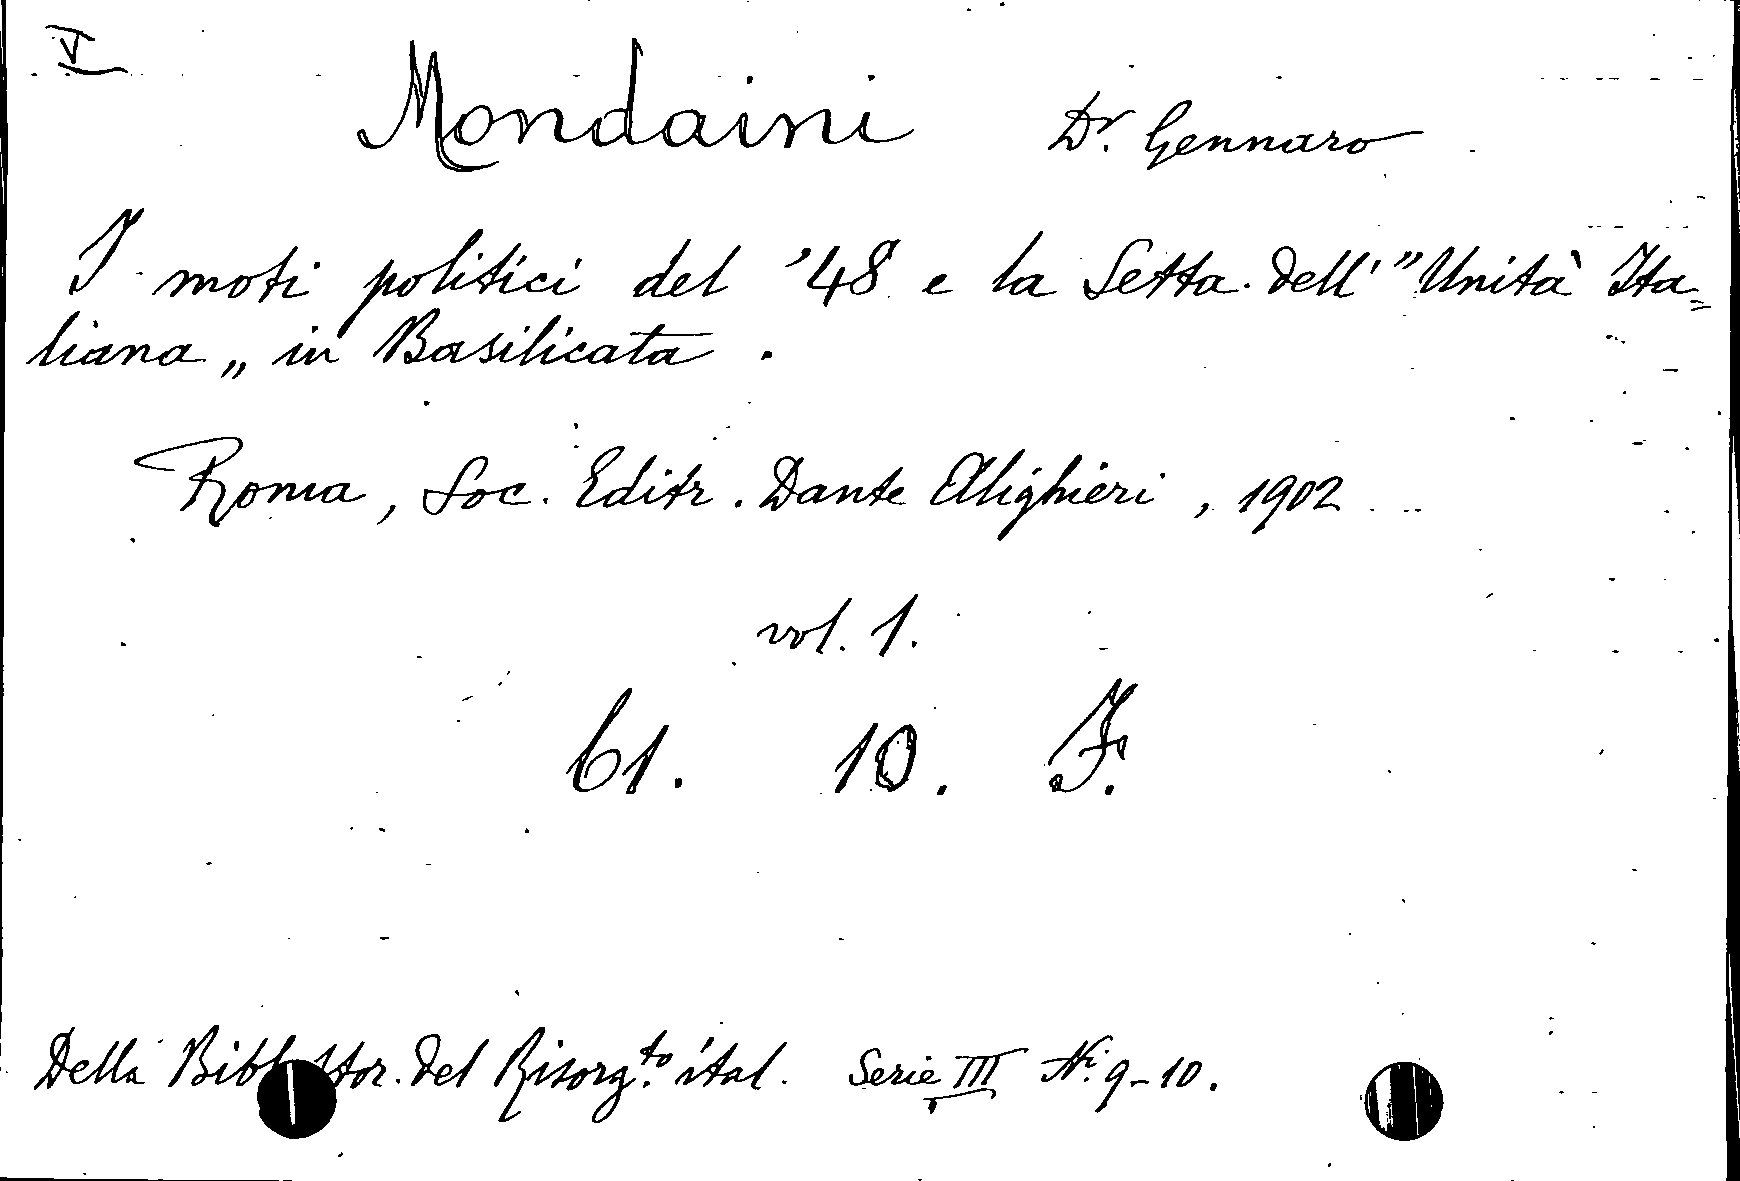 V
Mondaini Dr. Gennaro
I moti politici del '48 e la Setta dell' "Unità Ita=
liana„ in Basilicata.
Roma, Soc. Editr. Dante Alighieri, 1902
vol. 1.
61. 10. F.
Della Bibl. Stor. del Risorg.to ital. Serie III Ni. 9-10.